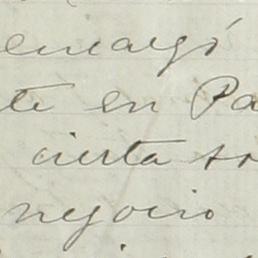 encargó
te en Pa
cierta so
negocio